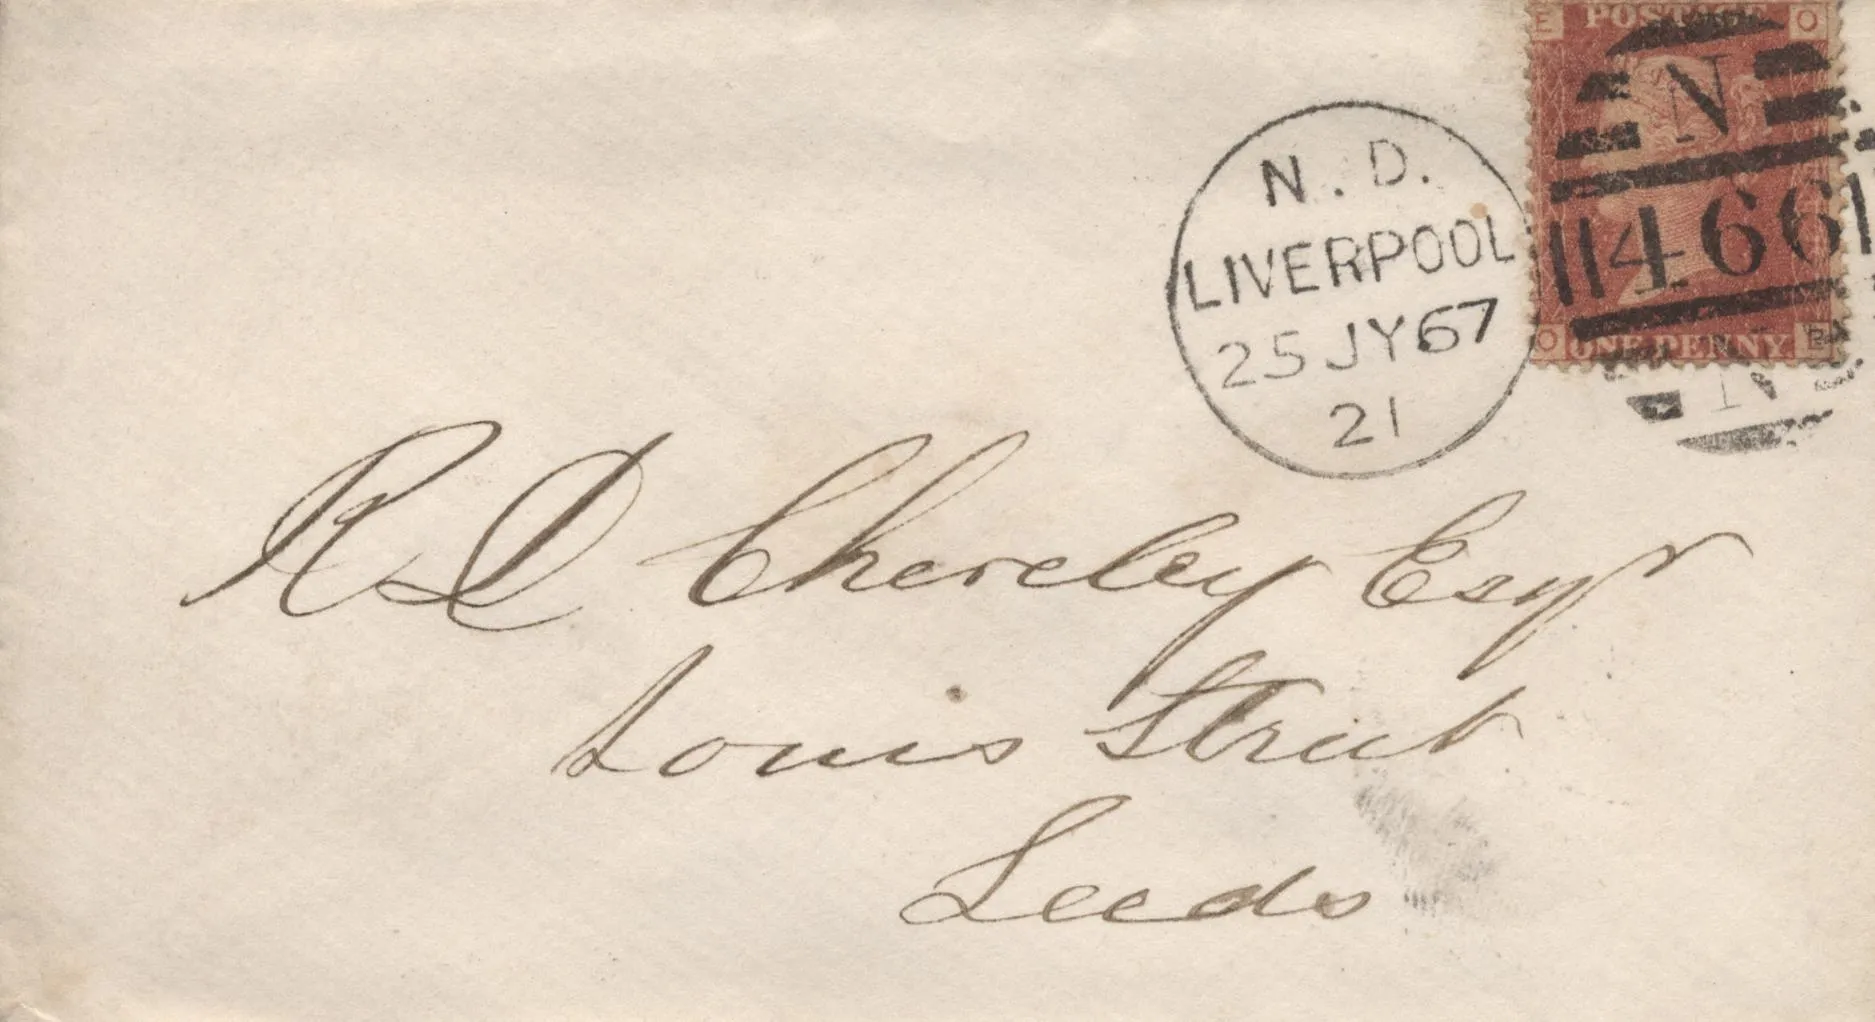 E POSTAGE O
N
466
O ONE PENNY E
N
N. D.
LIVERPOOL
25 JY 67
21
R D Chereley Esqr
Louis Street
Leeds